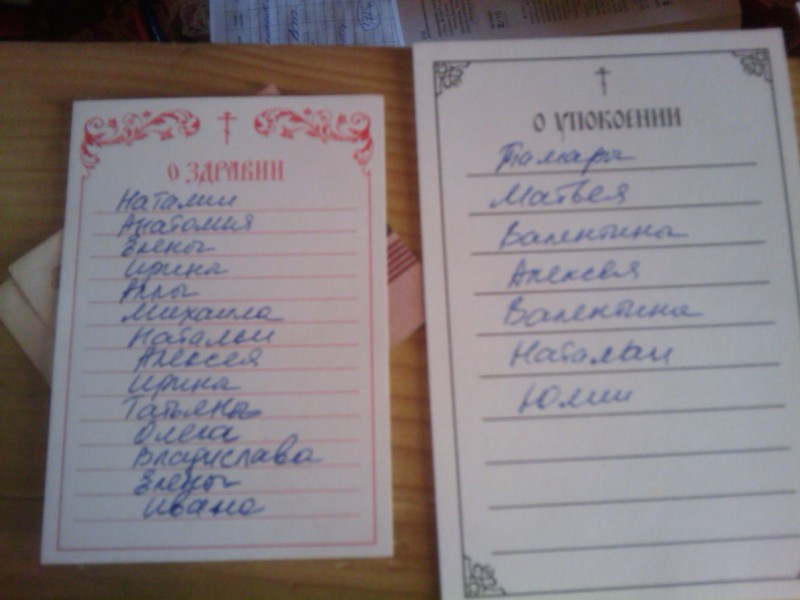 О ЗДРАВИИ
Наталии
Анатолия
Елены
Ирина
Аллы
Михаила
Натальи
Алексея
Ирина
Татьяны
Олега
Владислава
Елены
Ивана
О УПОКОЕНИИ
Тамары
Матвея
Валентины
Алексея
Валентина
Натальи
Юлии